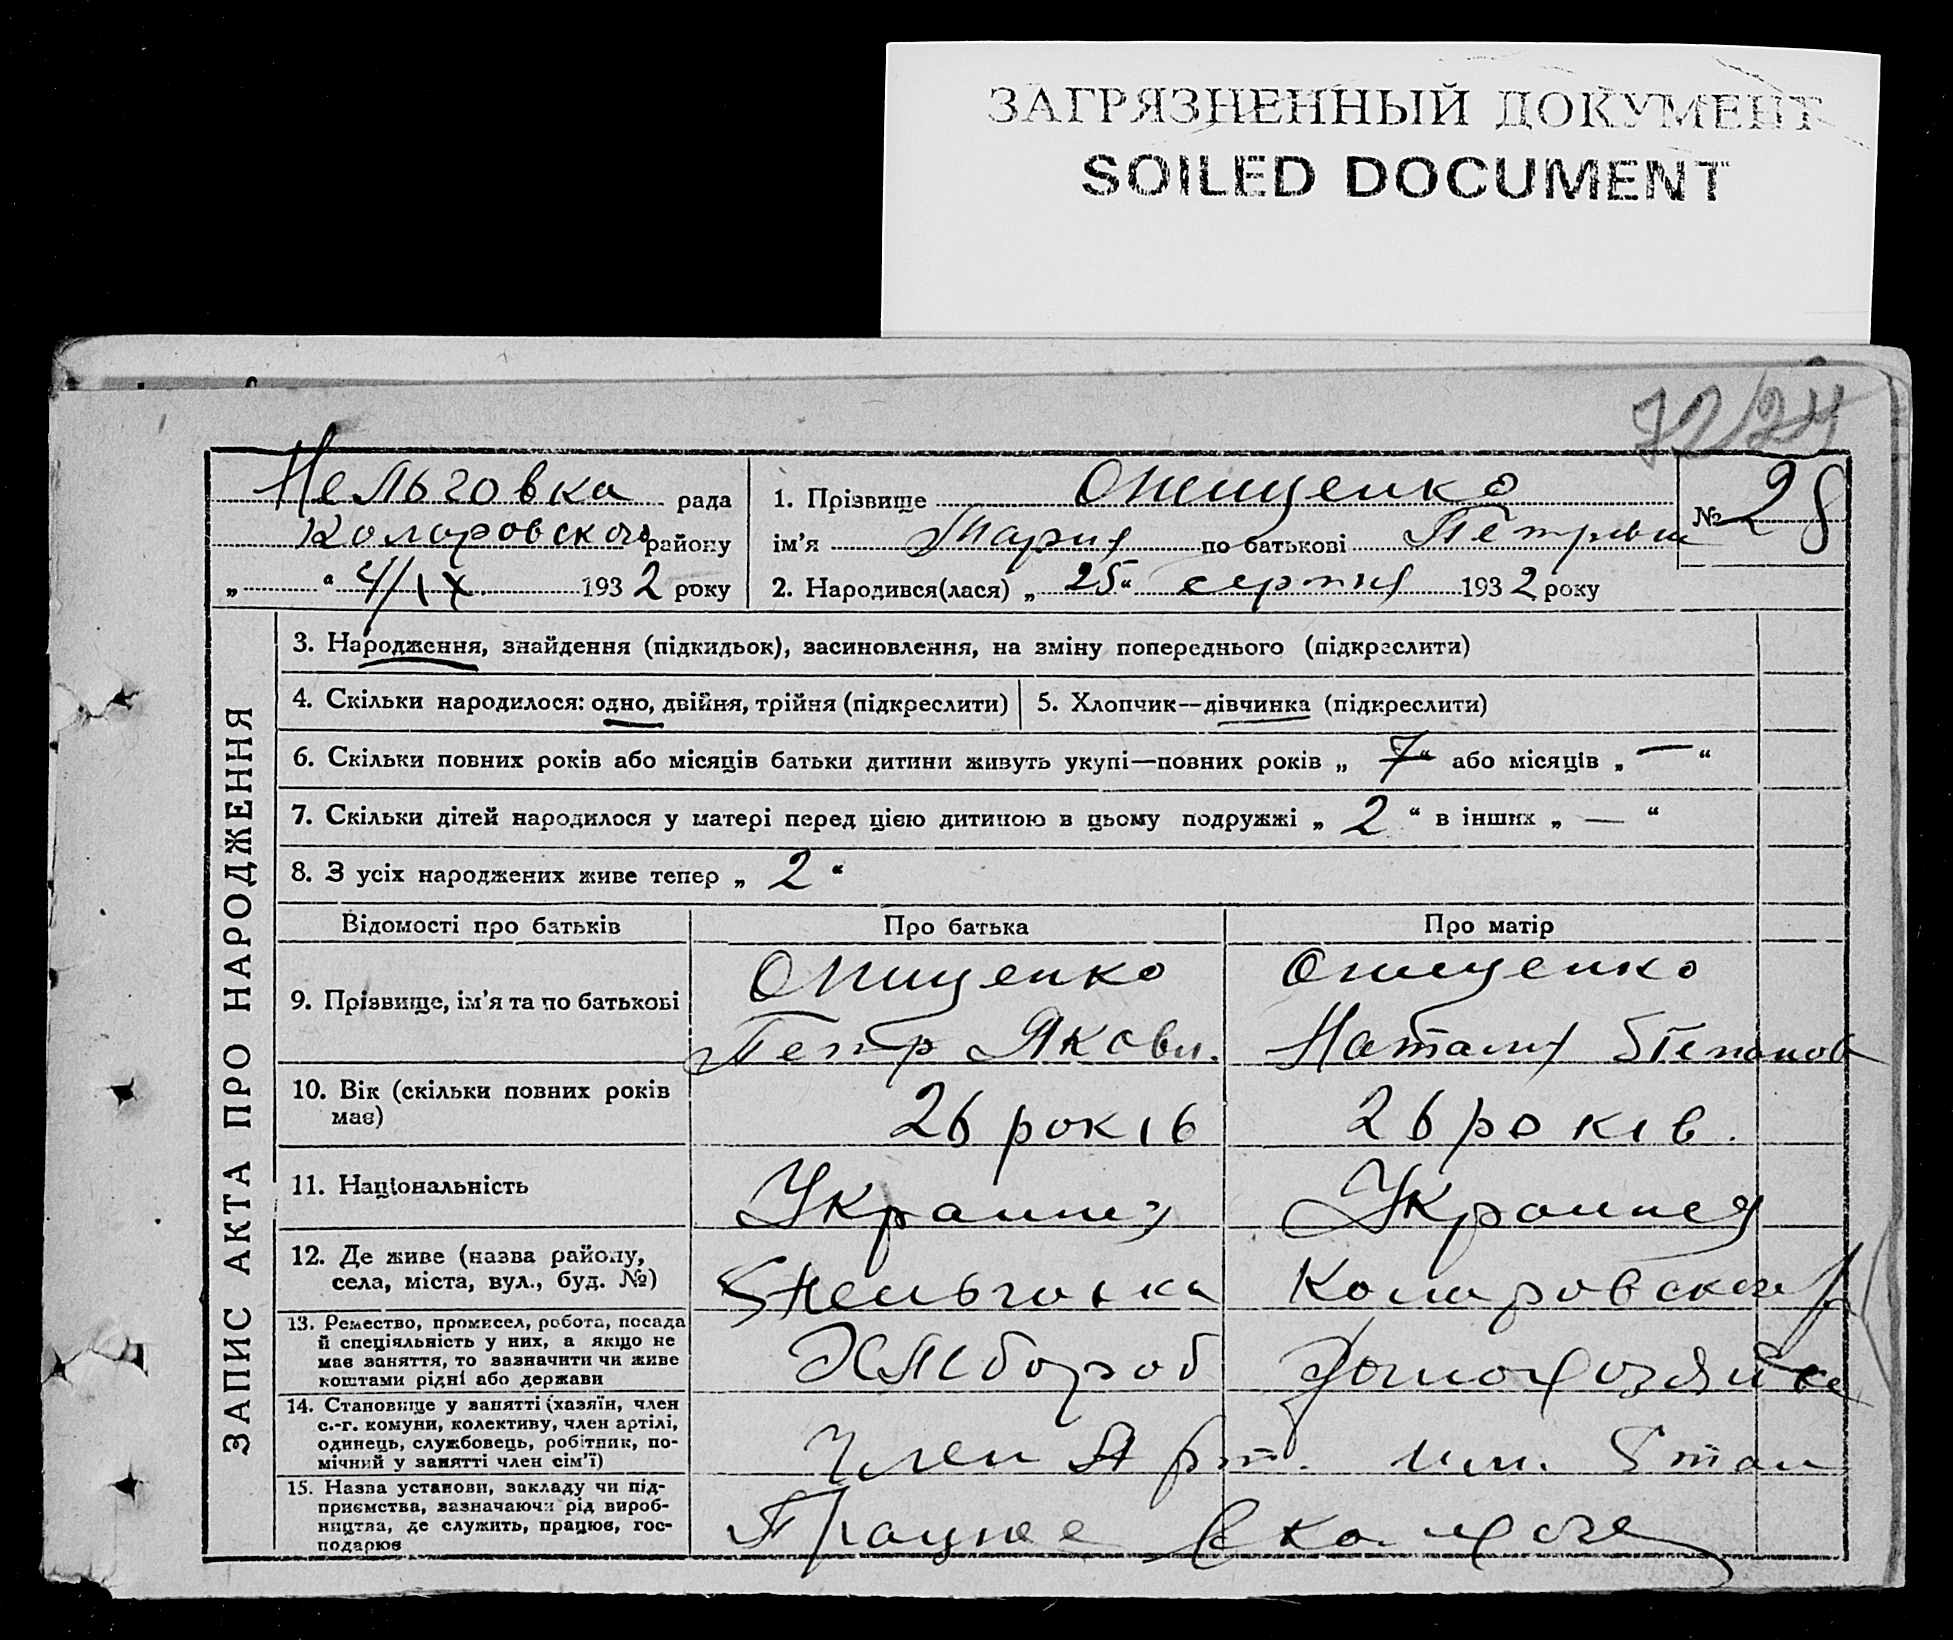 ЗАГРЯЗНЕННЫЙ ДОКУМЕНТ
SOILED DOCUMENT
72/24
Нельговка рада
Коларовского району
„ “ 4/IX. 1932 року
1. Прізвище Онищенко
ім’я Мария по батькові Петровн
2. Народився(лася) „ 25 “ серпня 1932 року
№ 28
ЗАПИС АКТА ПРО НАРОДЖЕННЯ
3. Народження, знайдення (підкидьок), засиновлення, на зміну попереднього (підкреслити)
4. Скільки народилося: одно, двійня, трійня (підкреслити)
5. Хлопчик—дівчинка (підкреслити)
6. Скільки повних років або місяців батьки дитини живуть укупі—повних років „ 7 “ або місяців „ — “
7. Скільки дітей народилося у матері перед цією дитиною в цьому подружжі „ 2 “ в інших „ — “
8. З усіх народжених живе тепер „ 2 “
Відомості про батьків
Про батька
Про матір
9. Прізвище, ім’я та по батькові
Онищенко
Петр Яковл.
Онищенко
Наталия Степанов
10. Вік (скільки повних років
має)
26 років
26 років.
11. Національність
Украинец
Украинся
12. Де живе (назва району,
села, міста, вул., буд. №)
Нельговка
Коларовского р
13. Ремество, промисел, робота, посада
й спеціяльність у них, а якщо не
має заняття, то зазначити чи живе
коштами рідні або держави
Хлібороб
Домохозяйка
14. Становище у занятті (хазяїн, член
с.-г. комуни, колективу, член артілі,
одинець, службовець, робітник, по-
мічний у занятті член сім’ї)
Член Арт. им. Стал
15. Назва установи, закладу чи під-
приємства, зазначаючи рід вироб-
ництва, де служить, працює, гос-
подарює
Працює в колхозе